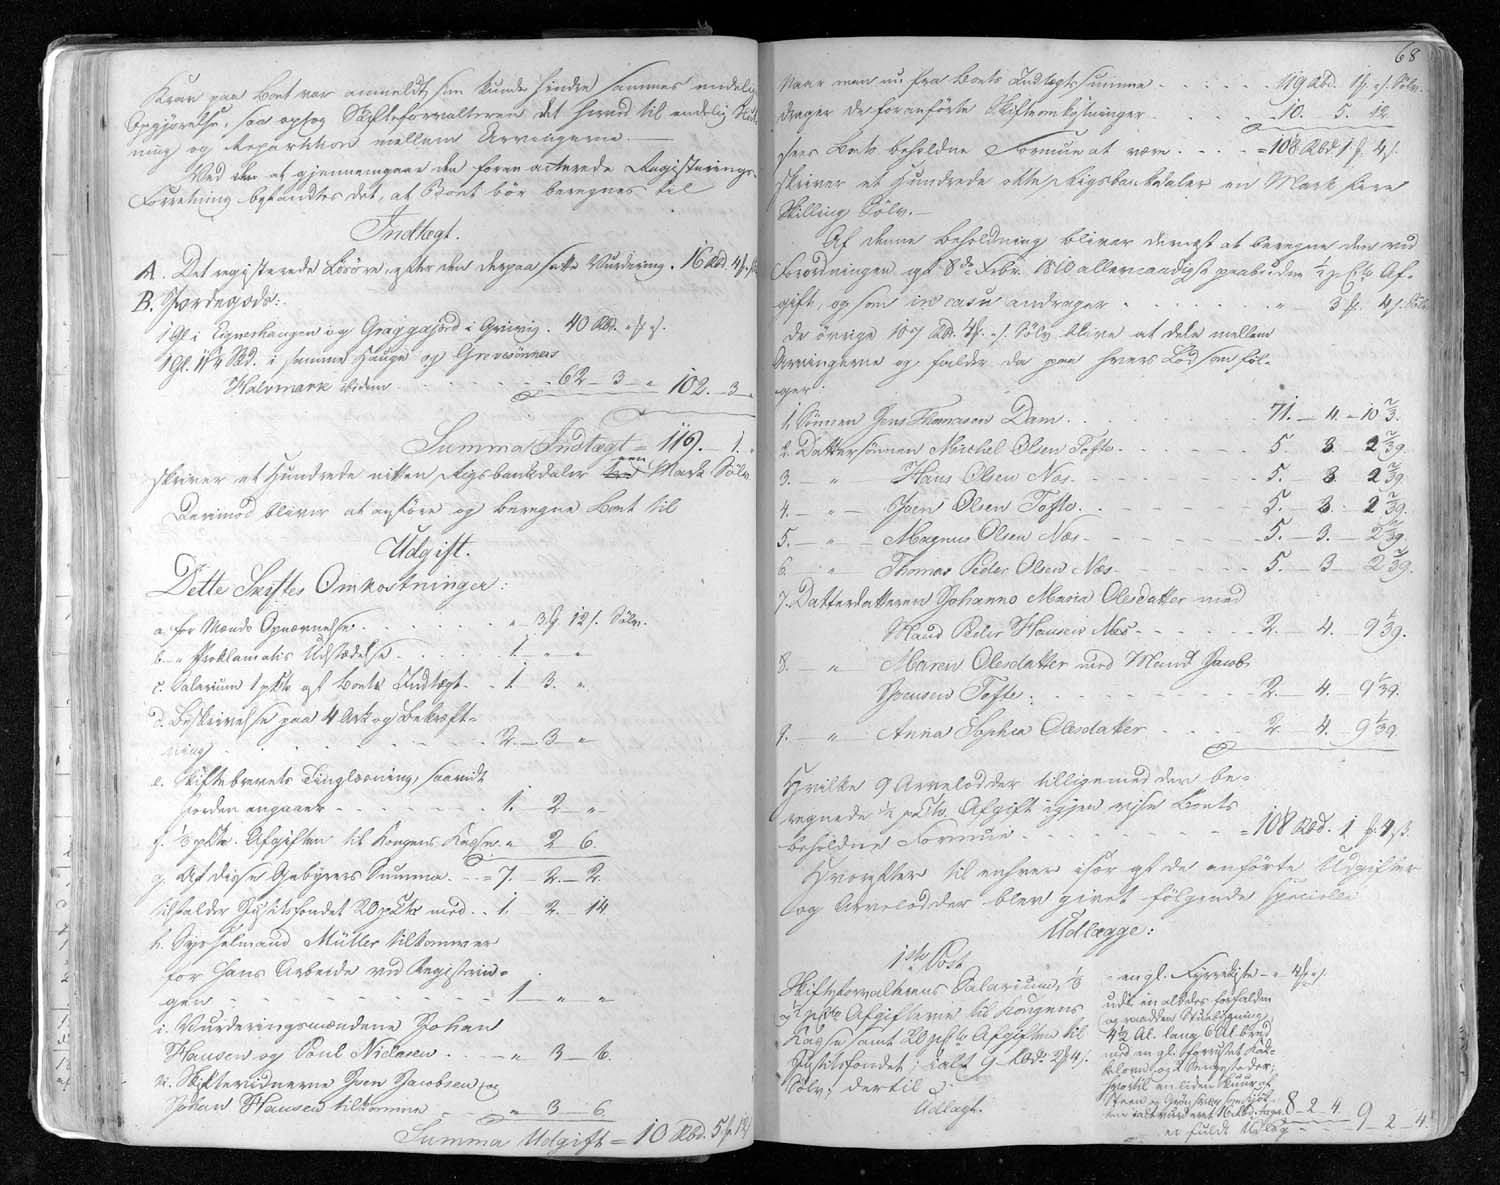 Krav paa Boet var anmeldt, som kunde hindre sammes endelige
Opgjørelse, saa optog Skifteforvalteren det herved til endelig Slut-
ning og Repartition mellem Arvingerne.
Ved at gjennemgaae den foran acterede Registrerings-
Forretning befandtes det, at Boet bør beregnes til
Indtægt.
A. Det registrerede Løsøre, efter den derpaa satte Vurdering. 16 Rbd. 4
B. Jordegods:
1 Gl. i Eignerhaugen og Graggajord i Grivig. 40 Rbd. " "
1 Gl. 1½ Skd. i samme Hauge og Grevesönners
Halvmark ibidem 62 – 3 – " 102. – 3 –
Summa Indtægt = 119. – 1.
skriver et Hundrede nitten Rigsbankdaler een Mark Sölv.
Derimod bliver at anföre og beregne Boet til
Udgift.
Dette Skiftes Omkostninger:
a. for Mænds Opnævnelse " 3 12 s. Sölv.
b. " Proklamatis Udstædelse 1. – " – "
c. Salarium 1 pCto af Boets Indtægt 1. – 3. – "
d. Beskrivelse paa 4 Ark og Bekræft-
ning 2. – 3 – "
e. Skiftebrevets Tinglæsning, saavidt
Jorden angaaer 1. – 2 – "
f. ⅓ pCto. Afgiften til Kongens Kasse " 2 – 6.
g. Af disse Gebyrers Summa = 7. – 2. – 2.
tilfalder Justitsfondet 20 pCto med 1. – 2 – 14
h. Sysselmand Müller tilkommer
for hans Arbeide ved Registrerin-
gen 1 – " – "
i. Vurderingsmændene Johan
Hansen og Poul Niclasen " 3 – 6.
k. Skiftevidnerne Joen Jacobsen og
Johan Hansen tilkomme " 3 – 6.
Summa Udgift = 10 Rbd. 5 12
68
Naar man nu fra Boets Indtægts summe 119 Rbd. 1 " Sölv
drager de foranförte Skifteomkostninger 10. – 5. – 12
sees Boets beholdne Formue at være = 108 Rbd 1 4
skriver et Hundrede otte Rigsbankdaler en Mark fire
Skilling Sölv.
Af denne Beholdning bliver dernæst at beregne den ved
Forordningen af 8de Febr. 1810 allernaadigst paabudne ½ pCto Af-
gift, og som in casu andrager " 3 4 Sölv
De övrige 107 Rbd. 4 " Sölv blive at dele mellem
Arvingerne og falder da paa hvers Lod som föl-
ger:
1. Sönnen Jens Thomasen Dam 71. – 4. – 10 ⅔.
2. Dattersönnen Michel Olsen Tofte 5. 3. 2 2/39
3. – " – Hans Olsen Næs 5. – 3. 2 2/39
4. – " – Joen Olsen Tofte 5. – 3. 2 2/39.
5. – " – Magnus Olsen Næs 5. – 3. – 2 2/39.
6. – " – Thomas Peder Olsen Næs 5. – 3 – 2 2/39.
7. Datterdatteren Johanne Maria Olesdatter med
Mand Peder Hansen Næs 2. – 4. – 9 1/39.
8. – " – Maren Olesdatter med Mand Jacob
Joensen Tofte 2. – 4. – 9 1/39.
9. – " – Anna Sophia Olesdatter 2. – 4. – 9 1/39.
Hvilke 9 Arvelodder tilligemed den be-
regnede ½ pCto. Afgift igjen vise Boets
beholdne Formue = 108 Rbd. 1 4 s.
Hvorefter til enhver især af de anförte Udgifter
og Arvelodder blev givet fölgende specielle
Udlægge:
1ste Post
Skifteforvalterens Salarium, ⅓
og ½ pCto Afgifterne til Kongens
Kasse samt 20 pCto Afgiften til
Justitsfondet, ialt 9 Rbd. 2 4
Sölv; dertil
Udlagt.
en gl. Fyrrekiste " 4
udi en aldeles forfalden
og raadden Stuebygning
4½ Al. lang 6 Al. bred
med en gl. forrustet Kak-
kelovn, og 2 Sengesteder;
hvortil en liden Skuur af
Steen og
8 – 2 – 4
er fuldt Udlæg 9 – 2 – 4.